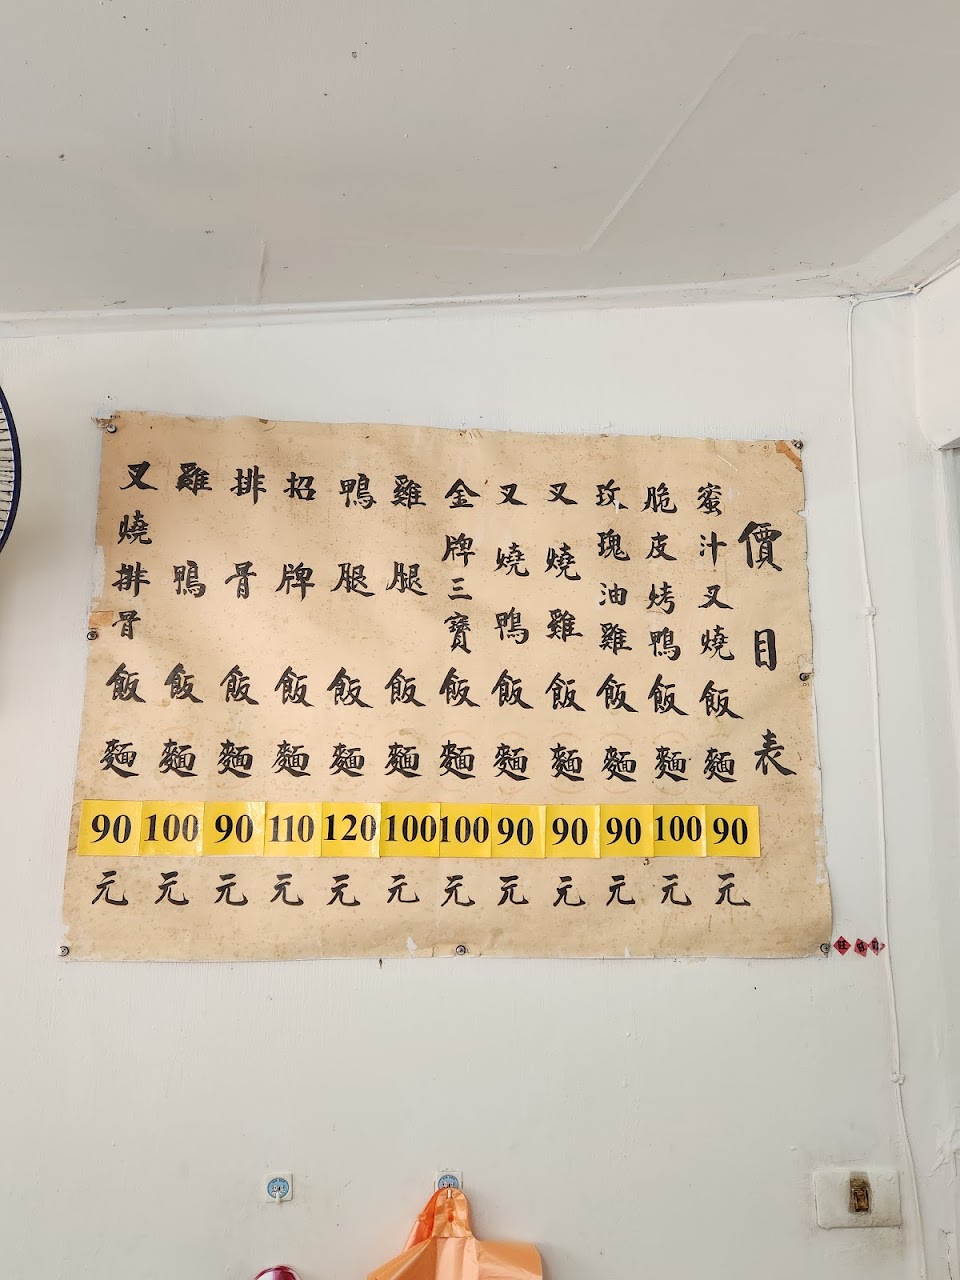 價目表
蜜汁叉燒飯麵90元
脆皮烤鴨飯麵100元
玫瑰油雞飯麵90元
叉燒雞飯麵90元
叉燒鴨飯麵90元
金牌三寶飯麵100元
雞腿飯麵100元
鴨腿飯麵120元
招牌飯麵110元
排骨飯麵90元
雞鴨飯麵100元
叉燒排骨飯麵90元